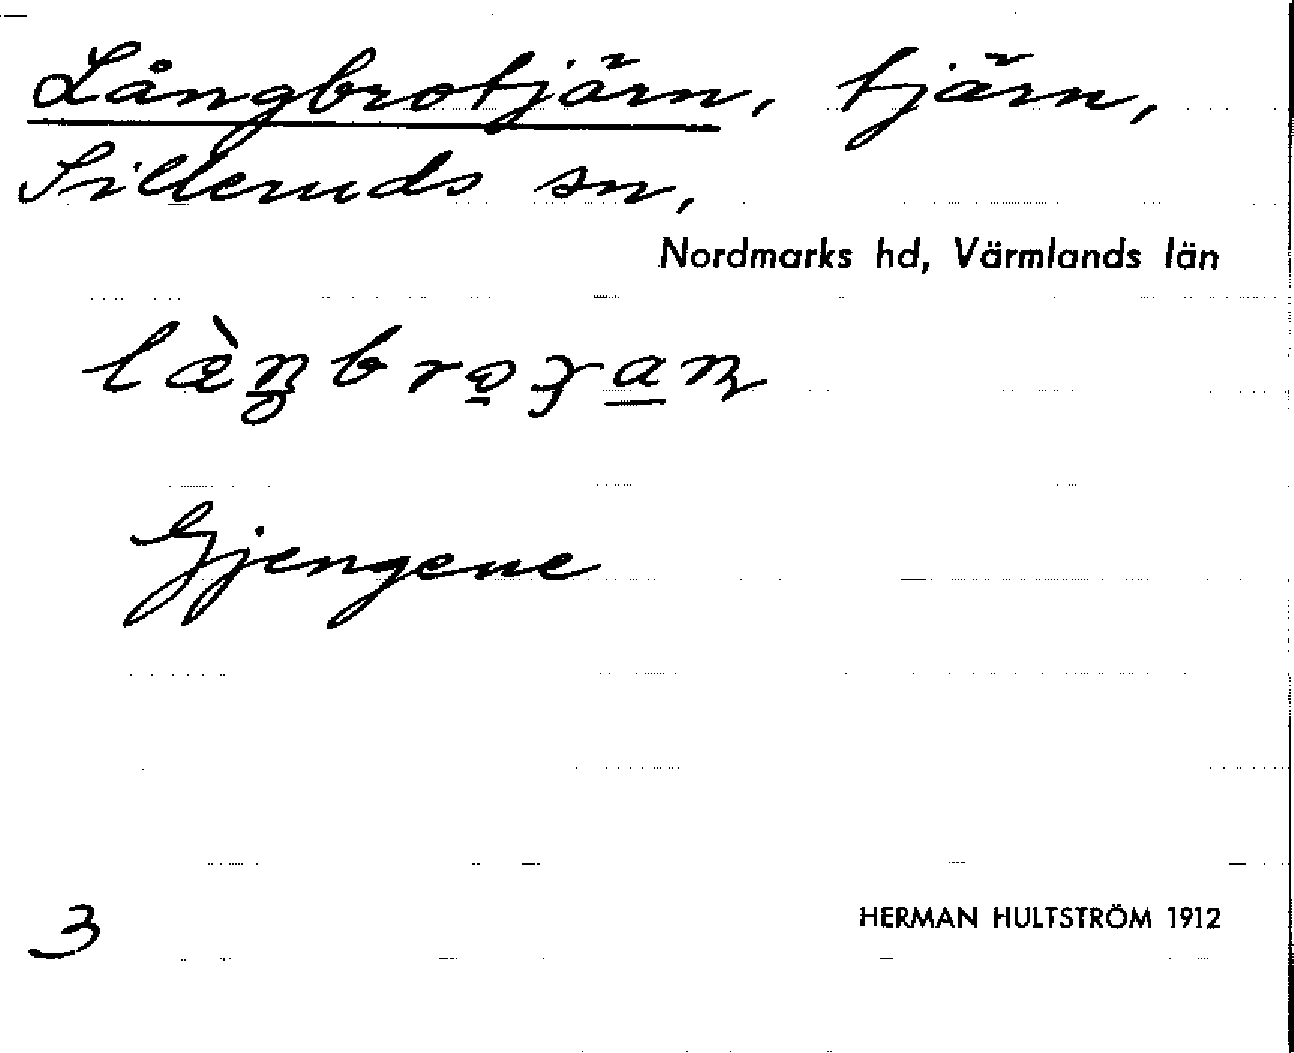 Långbrotjärn, tjärn,
Silleruds sn,
Nordmarks hd, Värmlands län
Gjengene
3
HERMAN HULTSTRÖM 1912